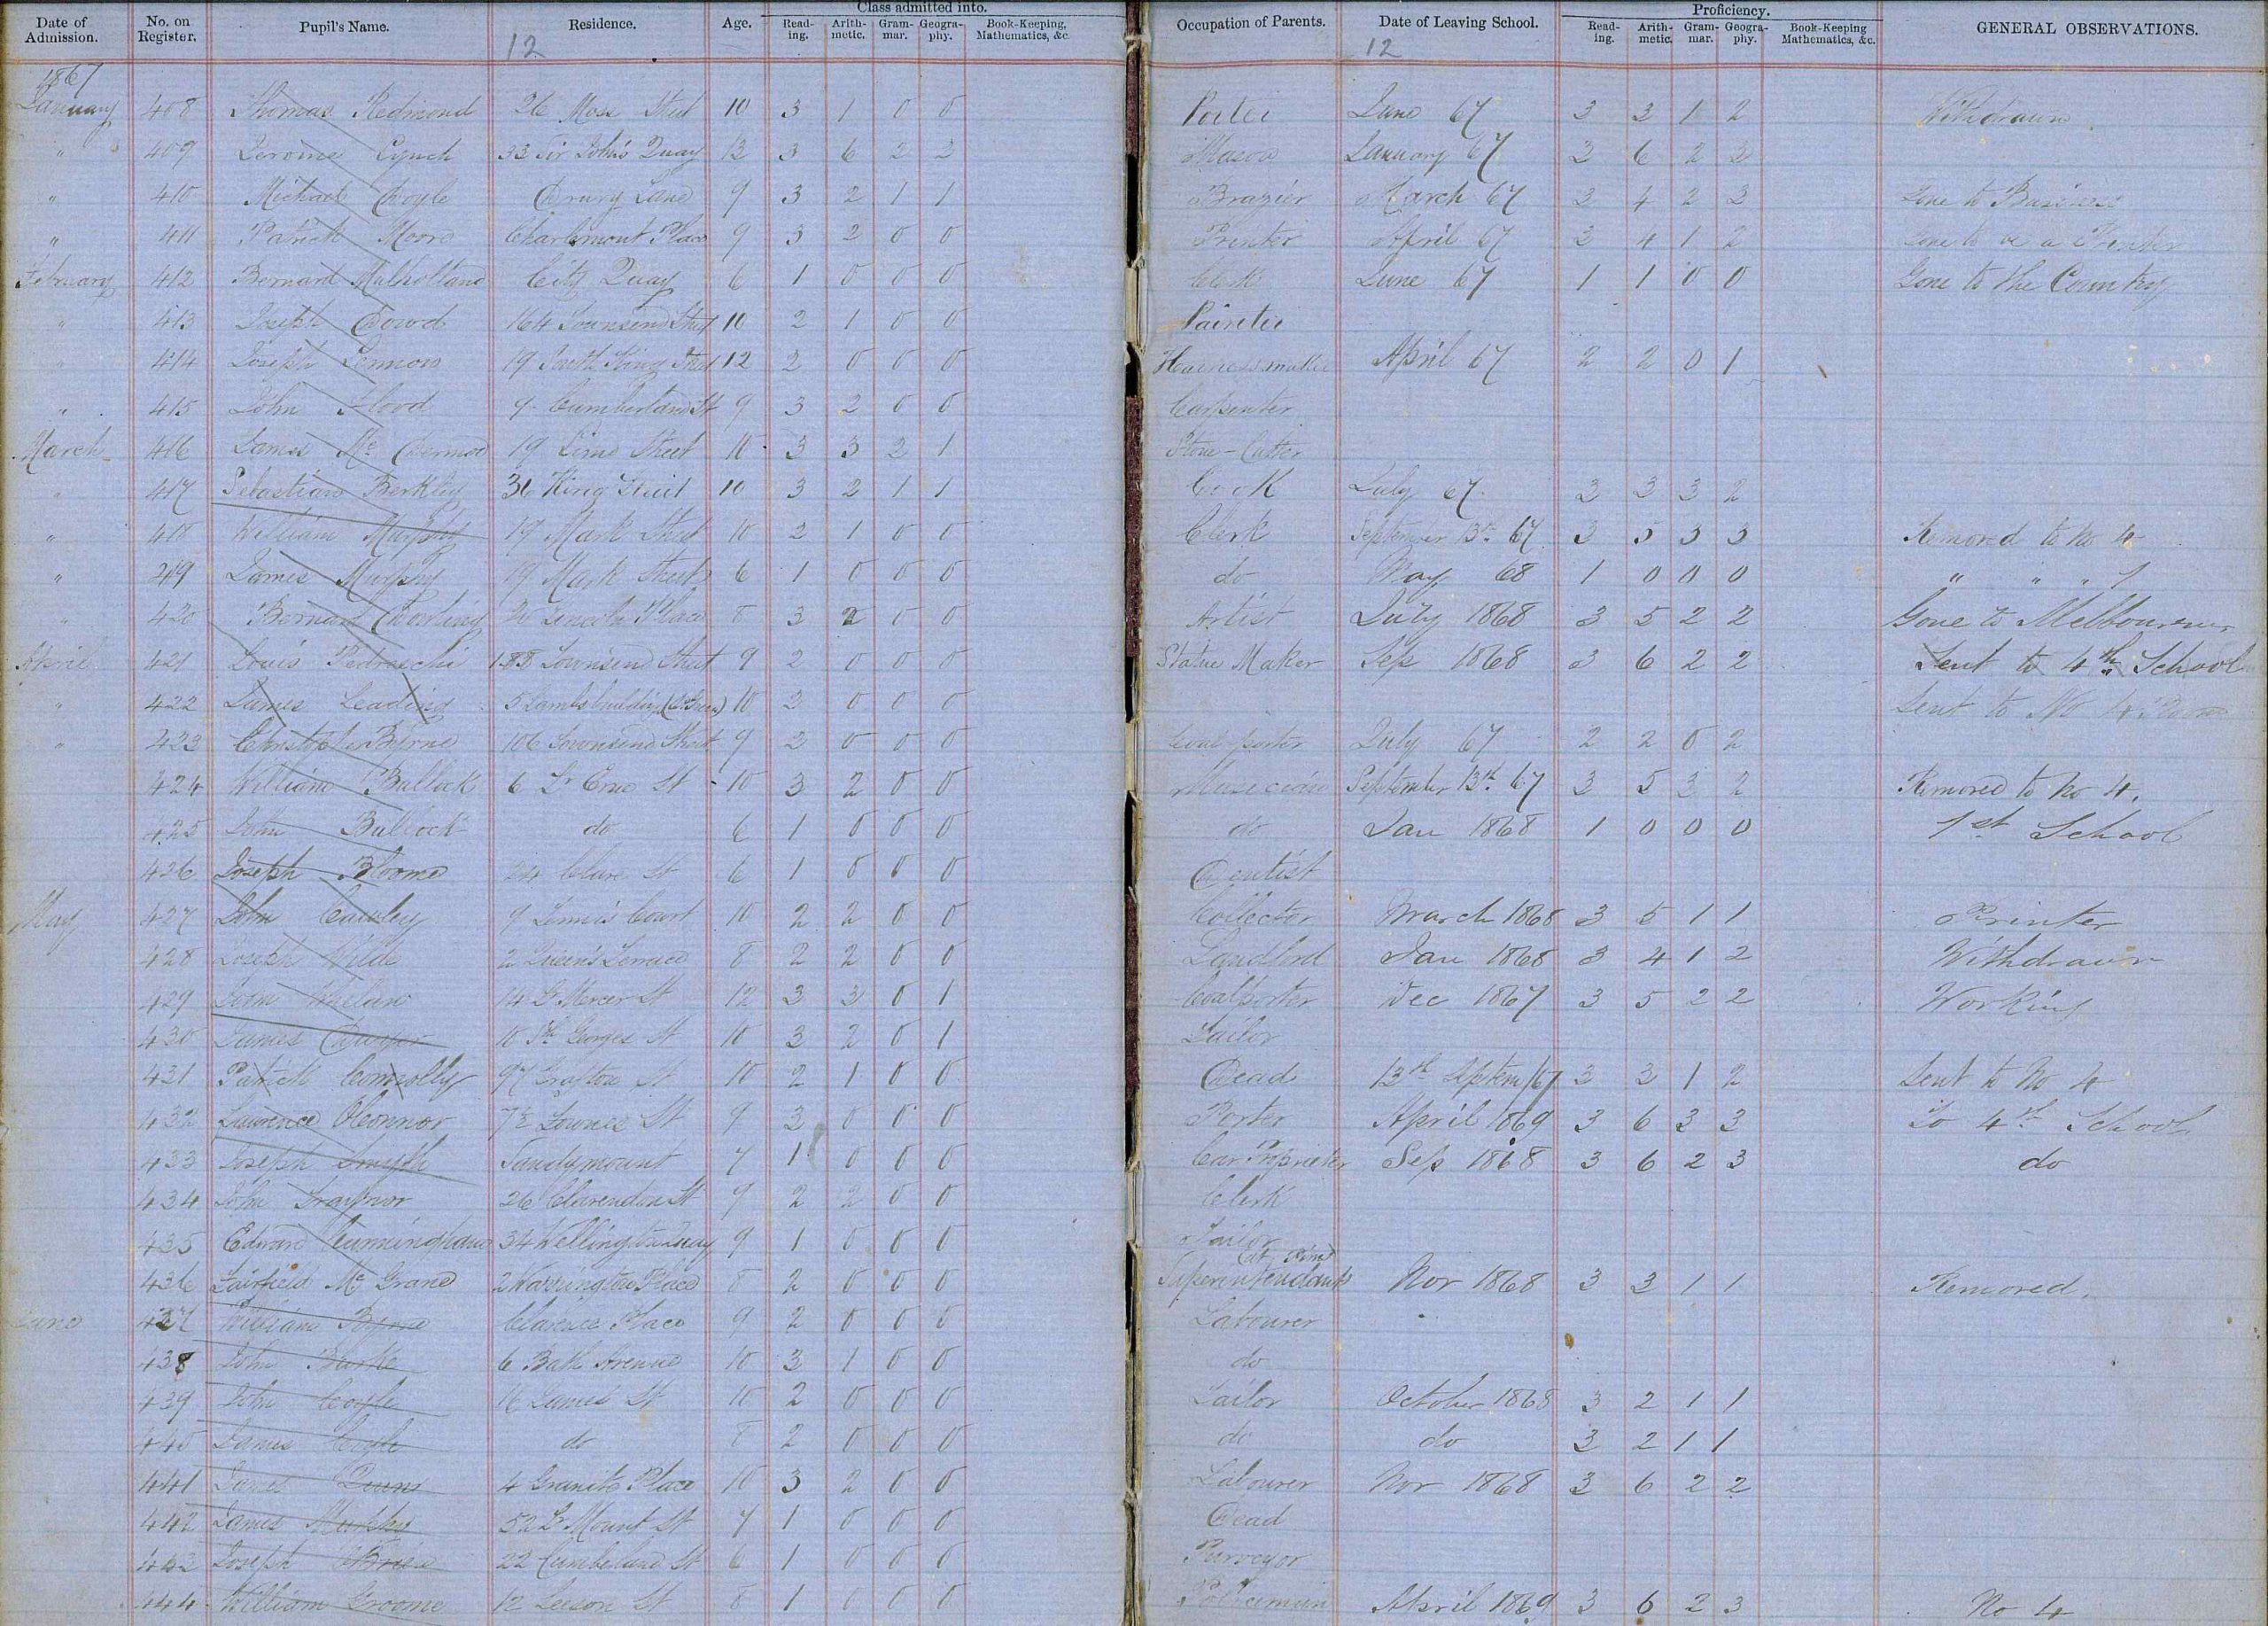 Date of Admission. No. on Register. Pupil's Name. Residence. Age. Class admitted into. Reading. Arithmetic. Grammar. Geography. Book-Keeping, Mathematics, &c. Occupation of Parents. Date of Leaving School. Proficiency. Reading. Arithmetic. Grammar. Geography. Book-Keeping Mathematics, &c. GENERAL OBSERVATIONS.
12 12
1867
January 408 Thomas Redmond 26 Moss Street 10 3 1 0 0 Porter June 67 3 3 1 2 Withdrawn
" 409 Jerome Lynch 33 Sir John's Quay 13 3 6 2 2 Mason January 67 3 6 2 3
" 410 Michael Doyle Drury Lane 9 3 2 1 1 Brazier March 67 3 4 2 3 Gone to Business
" 411 Patrick Moore Charlemont Place 9 3 2 0 0 Printer April 67 3 4 1 2 Gone to be a Printer
February 412 Bernard Mulholland City Quay 6 1 0 0 0 Clerk June 67 1 1 0 0 Gone to the Country
" 413 Joseph Dowd 164 Townsend Street 10 2 1 0 0 Painter
" 414 Joseph Lennon 19 South King Street 12 2 0 0 0 Harness maker April 67 2 2 0 1
" 415 John Flood 9 Cumberland St 9 3 2 0 0 Carpenter
March 416 James Mc Dermod 19 Lime Street 10 3 3 2 1 Stone-Cutter
" 417 Sebastian Berkley 36 King Street 10 3 2 1 1 Cook July 67 3 3 3 2
" 418 William Murphy 19 Mark Street 10 2 1 0 0 Clerk September 13th 67 3 5 3 3 Removd to No 4
" 419 James Murphy 19 Mark Street 6 1 0 0 0 do May 68 1 0 0 0 " " " 1
" 420 Bernard Dowling 20 Lincoln Place 8 3 2 0 0 Artist July 1868 3 5 2 2 Gone to Melbourne
April 421 Louis Pedreschi 188 Townsend Street 9 2 0 0 0 Statue Maker Sep 1868 3 6 2 2 Sent to 4th School
" 422 James Leading 5 Lambs building 10 2 0 0 0 Sent to No 4 Room
" 423 Christopher Byrne 106 Townsend Street 9 2 0 0 0 Coal porter July 67 2 2 0 2
424 William Bullock 6 Lr Erne St 10 3 2 0 0 Musician September 13th 67 3 5 3 2 Removed to No 4.
425 John Bullock do 6 1 0 0 0 do Jan 1868 1 0 0 0 1st School
426 Joseph Bloome 24 Clare St 6 1 0 0 0 Dentist
May 427 John Cawley 9 Tennis Court 10 2 2 0 0 Collector March 1868 3 5 1 1 Printer
428 Joseph Wilde 2 Queen's Terrace 8 2 2 0 0 Landlord Jan 1868 3 4 1 2 Withdrawn
429 John Whelan 14 Lr Mercer St 12 3 3 0 1 Coalporter Dec 1867 3 5 2 2 Working
430 James Dwyer 10 Sth Georges St 10 3 2 0 1 Tailor
431 Patrick Connolly 97 Grafton St 10 2 1 0 0 Dead 13th Septem/67 3 3 1 2 Sent to No 4
432 Lawrence O'Connor 7½ Fownes St 9 3 0 0 0 Porter April 1869 3 6 3 3 To 4th School
433 Joseph Smyth Sandymount 7 1 0 0 0 Car Proprietor Sep 1868 3 6 2 3 do
434 John Traynor 26 Clarendon St 9 2 2 0 0 Clerk
435 Edward Cunningham 34 Wellington Quay 9 1 0 0 0 Tailor
436 Fairfield Mc Grane 2 Warrington Place 8 2 0 0 0 Superintendant Nov 1868 3 3 1 1 Removed.
June 437 William Byrne Clarence Place 9 2 0 0 0 Labourer
438 John Burke 6 Bath Avenue 10 3 1 0 0 do
439 John Coyle 16 James St 10 2 0 0 0 Tailor October 1868 3 2 1 1
440 James Coyle do 8 2 0 0 0 do do 3 2 1 1
441 James Dunn 4 Granite Place 10 3 2 0 0 Labourer Nov 1868 3 6 2 2
442 James Murphy 52 Lr Mount St 7 1 0 0 0 Dead
443 Joseph O'Brien 22 Cumberland St 6 1 0 0 0 Purveyor
444 William Groome 12 Leeson St 8 1 0 0 0 Policeman April 1869 3 6 2 3 No 4